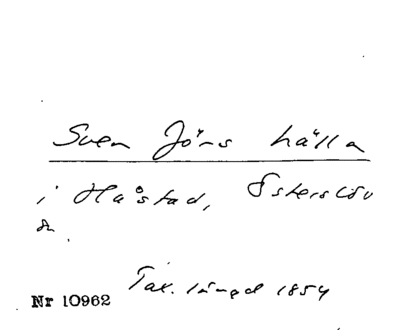 Sven Jöns källa
i Håstad, Österslöv
sn.
Tax. längd 1854
Nr 10962